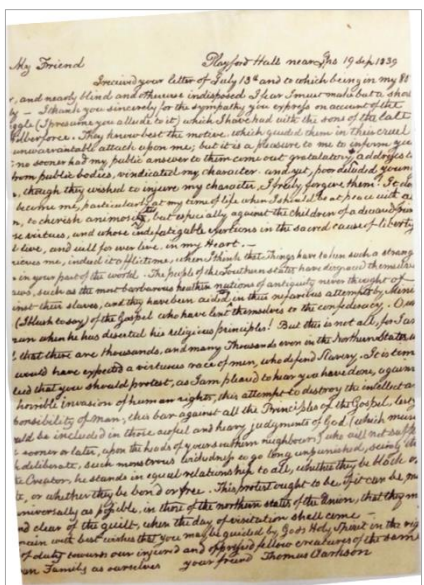 My Friend Playford Hall near Ips 19 Sep. 1839
I received your letter of July 13th and to which being in my 80
r, and nearly blind and otherwise indisposed I fear I must make but a shor
ly — I thank you sincerely for the sympathy you express on account of the
ggle (I presume you allude to it) which I have had with the sons of the late
Wilberforce. They know best the motive, which guided them in their cruel
unwarrantable attack upon me; but it is a pleasure to me to inform you
no sooner had my public answer to them come out gratulatory addresses to
from public bodies, vindicated my character. and yet, poor deluded young
, though they wished to injure my character, I freely forgive them. It do
become me, particularly at my time of life when I should be at peace with a
n, to cherish animosity, but especially against the children of a deceased frien
se virtues, and whose indefatigable exertions in the sacred cause of liberty
l live, and will for ever live, in my Heart. —
rieves me, indeed it afflicts me, when I think that Things have taken such a strang
n in your part of the world. The people of the Southern states have disgraced themselve
aws, such as the most barbarous heathen nations of antiquity never thought of
inst their slaves, and they have been aided in these nefarious attempts by Minis
(I blush to say) of the Gospel who have lent themselves to the confederacy.
man when he has deserted his religious principles! But this is not all, for I am
d that there are thousands, and many Thousands even in the Northern States w
would have expected a virtuous race of men, who defend Slavery. It is tim
deed that you should protest, as I am pleased to hear you have done, agains
horrible invasion of human rights, this attempt to destroy the intellect an
ponsibility of Man, this bar against all the Principles of the Gospel, lest y
uld be included in those awful and heavy judgments of God (which must
t sooner or later, upon the heads of your southern neighbours) who will not suff
h deliberate, such monstrous wickedness to go long unpunished, seeing th
e Creator, he stands in equal relationship to all, whether they be black or
te, or whether they be bond or free. This protest ought to be if it can be, m
niversally as possible, in those of the northern states of the Union, that they m
nd clear of the guilt, when the day of visitation shall come —
main with best wishes that you may be guided by Gods Holy Spirit in the rig
of duty towards our injured and oppressed fellow creatures of the same
an Family as ourselves your friend Thomas Clarkson